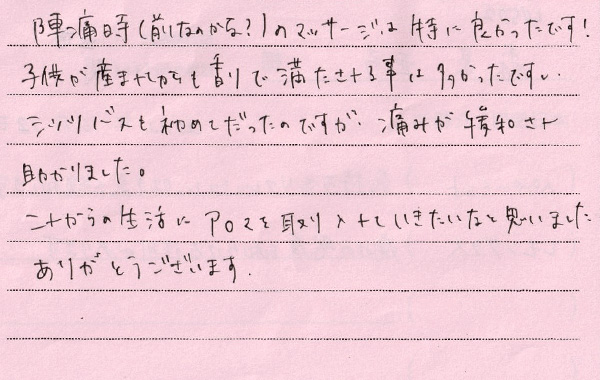 陣痛時(前なのかな?)のマッサージは特に良かったです!
子供が産まれてからも香りで満たされる事は多かったですし、
シッツバスも初めてだったのですが、痛みが緩和され
助かりました。
これからの生活にアロマを取り入れていきたいなと思いました
ありがとうございます.